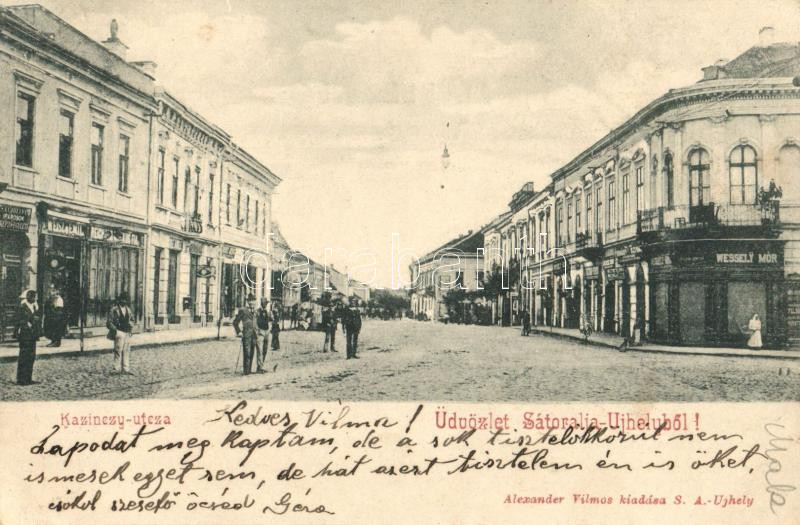 WESSELY MÓR
darabanth
Kazinczy-utcza
Üdvözlet Sátoralja-Ujhelyből!
Kedves Vilma!
Lapodat meg kaptam, de a sok tisztelőkörül nem
ismerek egyet sem, de hát azért tisztelem én is őket,
csókol szerető öcséd Géza
Alexander Vilmos kiadása S. A.-Ujhely